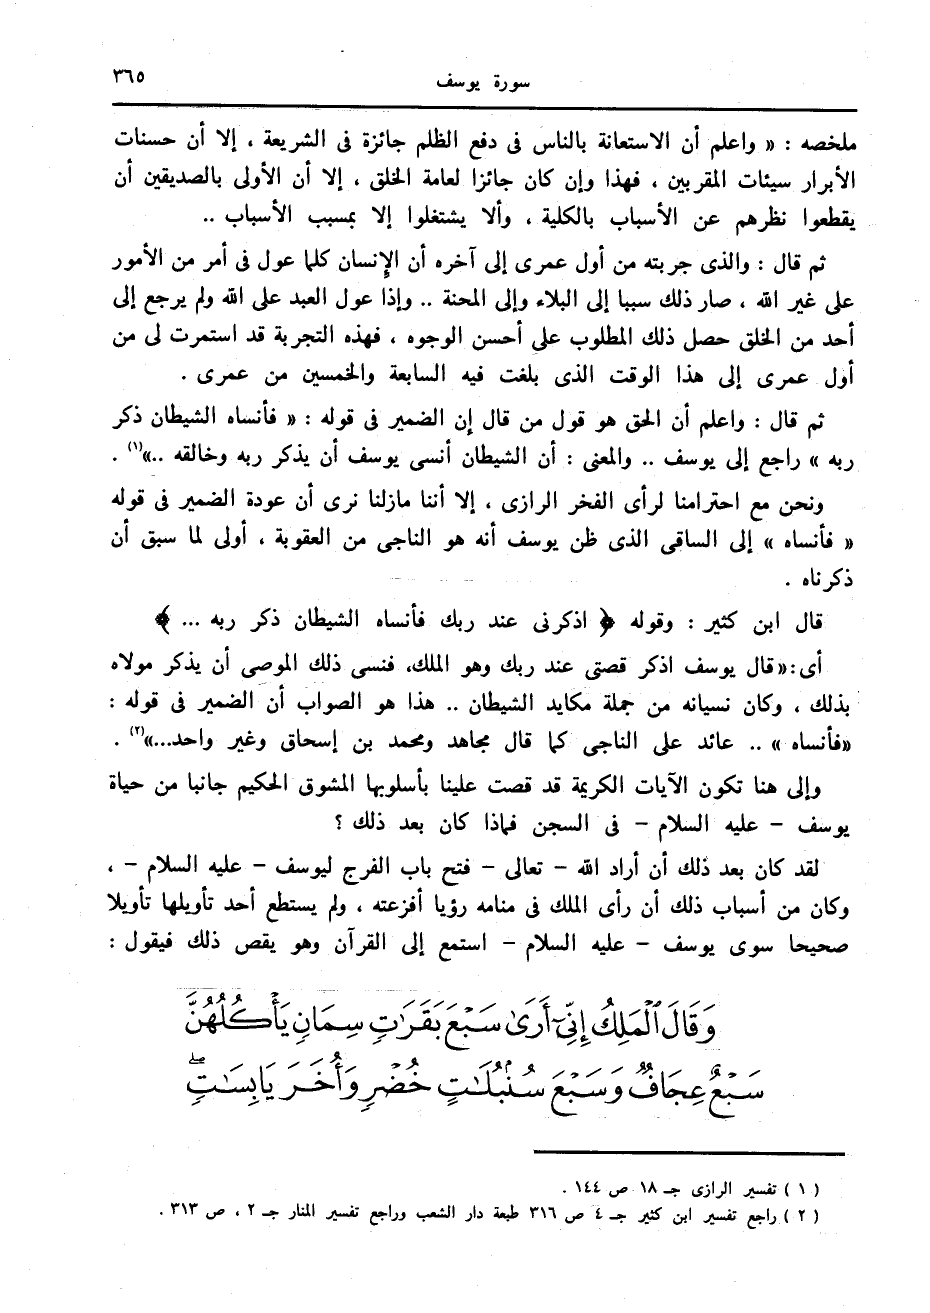 سورة يوسف
٣٦٥
ملخصه : « واعلم أن الاستعانة بالناس فى دفع الظلم جائزة فى الشريعة ، إلا أن حسنات
الأبرار سيئات المقربين ، فهذا وإن كان جائزا لعامة الخلق ، إلا أن الأولى بالصديقين أن
يقطعوا نظرهم عن الأسباب بالكلية ، وألا يشتغلوا إلا بمسبب الأسباب ..
ثم قال : والذى جربته من أول عمرى إلى آخره أن الإنسان كلما عول فى أمر من الأمور
على غير الله ، صار ذلك سببا إلى البلاء وإلى المحنة .. وإذا عول العبد على الله ولم يرجع إلى
أحد من الخلق حصل ذلك المطلوب على أحسن الوجوه ، فهذه التجربة قد استمرت لى من
أول عمرى إلى هذا الوقت الذى بلغت فيه السابعة والخمسين من عمرى .
ثم قال : واعلم أن الحق هو قول من قال إن الضمير فى قوله : « فأنساه الشيطان ذكر
ربه » راجع إلى يوسف .. والمعنى : أن الشيطان أنسى يوسف أن يذكر ربه وخالقه ..»(١) .
ونحن مع احترامنا لرأى الفخر الرازى ، إلا أننا مازلنا نرى أن عودة الضمير فى قوله
« فأنساه » إلى الساقى الذى ظن يوسف أنه هو الناجى من العقوبة ، أولى لما سبق أن
ذكرناه .
قال ابن كثير : وقوله ﴿ اذكرنى عند ربك فأنساه الشيطان ذكر ربه ... ﴾
أى :«قال يوسف اذكر قصتى عند ربك وهو الملك، فنسى ذلك الموصى أن يذكر مولاه
بذلك ، وكان نسيانه من جملة مكايد الشيطان .. هذا هو الصواب أن الضمير فى قوله :
«فأنساه » .. عائد على الناجى كما قال مجاهد ومحمد بن إسحاق وغير واحد...»(٢) .
وإلى هنا تكون الآيات الكريمة قد قصت علينا بأسلوبها المشوق الحكيم جانبا من حياة
يوسف - عليه السلام - فى السجن فماذا كان بعد ذلك ؟
لقد كان بعد ذلك أن أراد الله - تعالى - فتح باب الفرج ليوسف - عليه السلام - ،
وكان من أسباب ذلك أن رأى الملك فى منامه رؤيا أفزعته ، ولم يستطع أحد تأويلها تأويلا
صحيحا سوى يوسف - عليه السلام - استمع إلى القرآن وهو يقص ذلك فيقول :
وَقَالَ ٱلْمَلِكُ إِنِّىٓ أَرَىٰ سَبْعَ بَقَرَٰتٍ سِمَانٍ يَأْكُلُهُنَّ
سَبْعٌ عِجَافٌ وَسَبْعَ سُنۢبُلَٰتٍ خُضْرٍ وَأُخَرَ يَابِسَٰتٍ ۖ
( ١ ) تفسير الرازى جـ ١٨ ص ١٤٤ .
( ٢ ) راجع تفسير ابن كثير جـ ٤ ص ٣١٦ طبعة دار الشعب وراجع تفسير المنار جـ ٢ ، ص ٣١٣ .